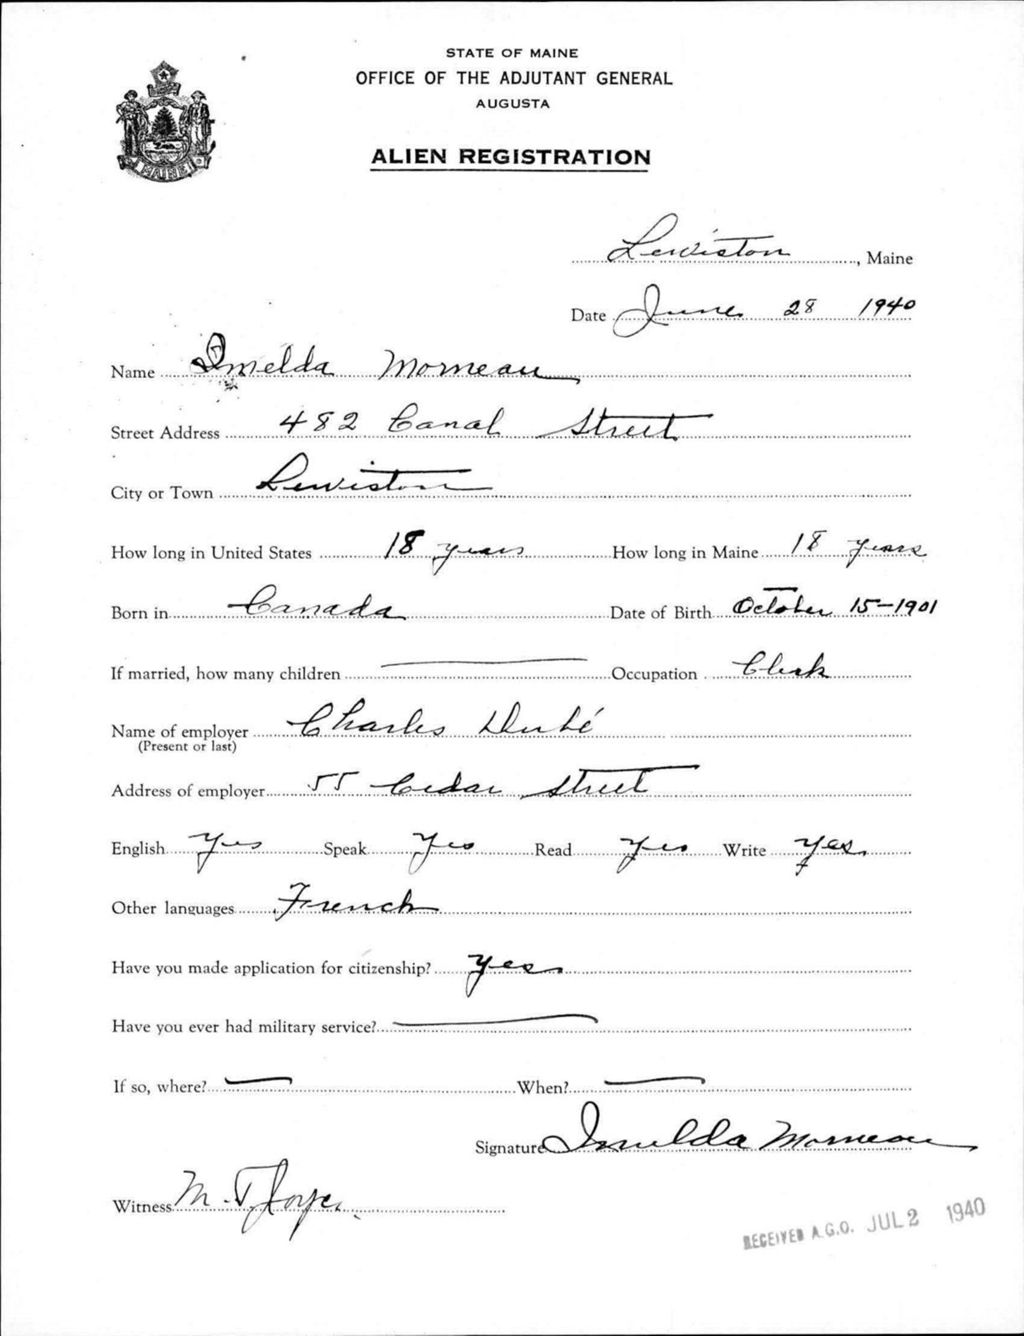 STATE OF MAINE
OFFICE OF THE ADJUTANT GENERAL
AUGUSTA
ALIEN REGISTRATION
MAINE
Lewiston, Maine
Date June 28 1940
Name Imelda Morneau
Street Address 482 Canal Street
City or Town Lewiston
How long in United States 18 years How long in Maine 18 years
Born in Canada Date of Birth October 15-1901
If married, how many children — Occupation Clerk
Name of employer Charles Dubé
(Present or last)
Address of employer 55 Cedar Street
English Yes Speak Yes Read Yes Write Yes
Other languages French
Have you made application for citizenship? Yes
Have you ever had military service? —
If so, where? — When? —
Signature Imelda Morneau
Witness M. T. Joyce
RECEIVED A.G.O. JUL 2 1940